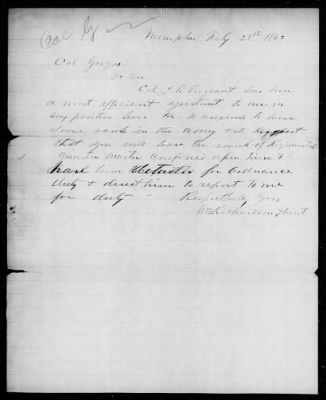 Col G
Memphis Feby 25th 1862
Col Gorgas
Dr Sir
Col J. R. has been
a most efficient assistant to me in
my position here. He is anxious to have
Some rank in the Army & I
that you will have the rank of Regimental
Quarter Master conferred upon him &
have him detailed for Ordnance
duty & direct him to report to me
for duty - Respectfully Yours
Wm Richardson Hunt